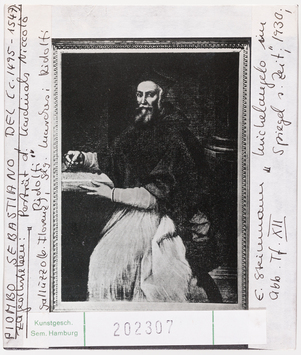 PIOMBO SEBASTIANO DEL (c. 1495-1547)
Zugeschrieben: Porträt d. Kardinals Niccolò
Ridolfi
Galluzzo b. Florenz Slg. Marchesi Ridolfi
E. Steinmann "Michelangelo im
Spiegel s. Zeit", 1930,
Abb. Tf. XII
Kunstgesch.
Sem. Hamburg
202307